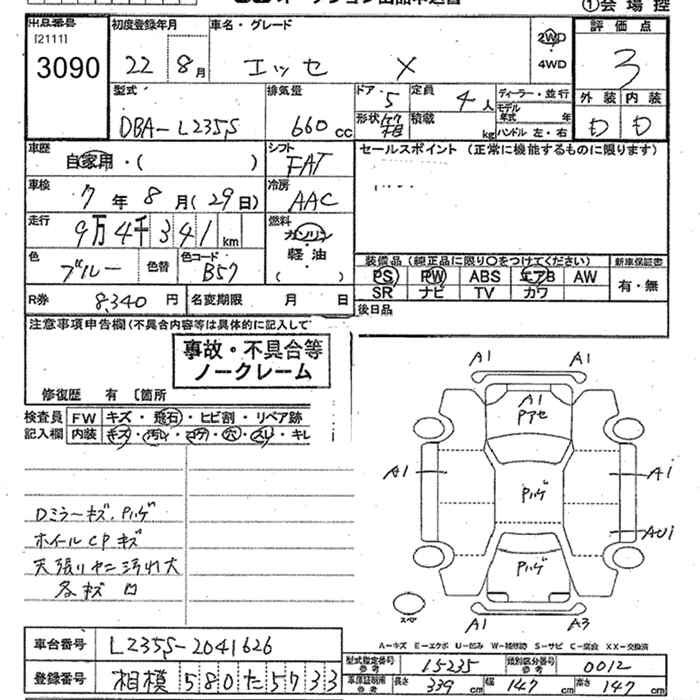 オークション出品申込書
①会場控
出品番号 初度登録年月 車名・グレード 評価点
[2111]
3090 22 8月 エッセ X 2WD 4WD 3
型式 排気量 ドア・5 定員 4人 ディーラー・並行 外装 内装
形状 積載 kg モデル年式 年
DBA-L235S 660cc ハンドル 左・右 D D
車歴 自家用・( ) シフト FAT セールスポイント (正常に機能するものに限ります)
車検 7年8月(29日) 冷房 AAC
走行 9万4千341km 燃料 ガソリン・軽油・( )
色 ブルー 色替 色コード B57
装備品(純正品に限り〇をつけてください) 新車保証書
PS PW ABS エアB AW 有・無
SR ナビ TV カワ
R券 8,340円 名変期限 月 日 後日品
注意事項申告欄(不具合内容等は具体的に記入して
事故・不具合等
ノークレーム
修復歴 有 〔箇所
検査員 FW キズ・飛石・ヒビ割・リペア跡
記入欄 内装 キズ・汚れ・コゲ・穴・スレ・キレ
A1 A1
A1
Pアセ
A1 A1
Pハゲ
AU1
Pハゲ
スペア
A1 A3
Dミラーキズ、Pハゲ
ホイールCPキズ
天張りヤニ汚れ大
各キズ
A-キズ E-エクボ U-凹み W-補修跡 S-サビ C-腐食 XX-交換済
車台番号 L235S-2041626
型式指定番号 参考 15235 類別区分番号 参考 0012
登録番号 相模 580 た 5733
車庫証明用 参考 長さ 339cm 幅 147cm 高さ 147cm